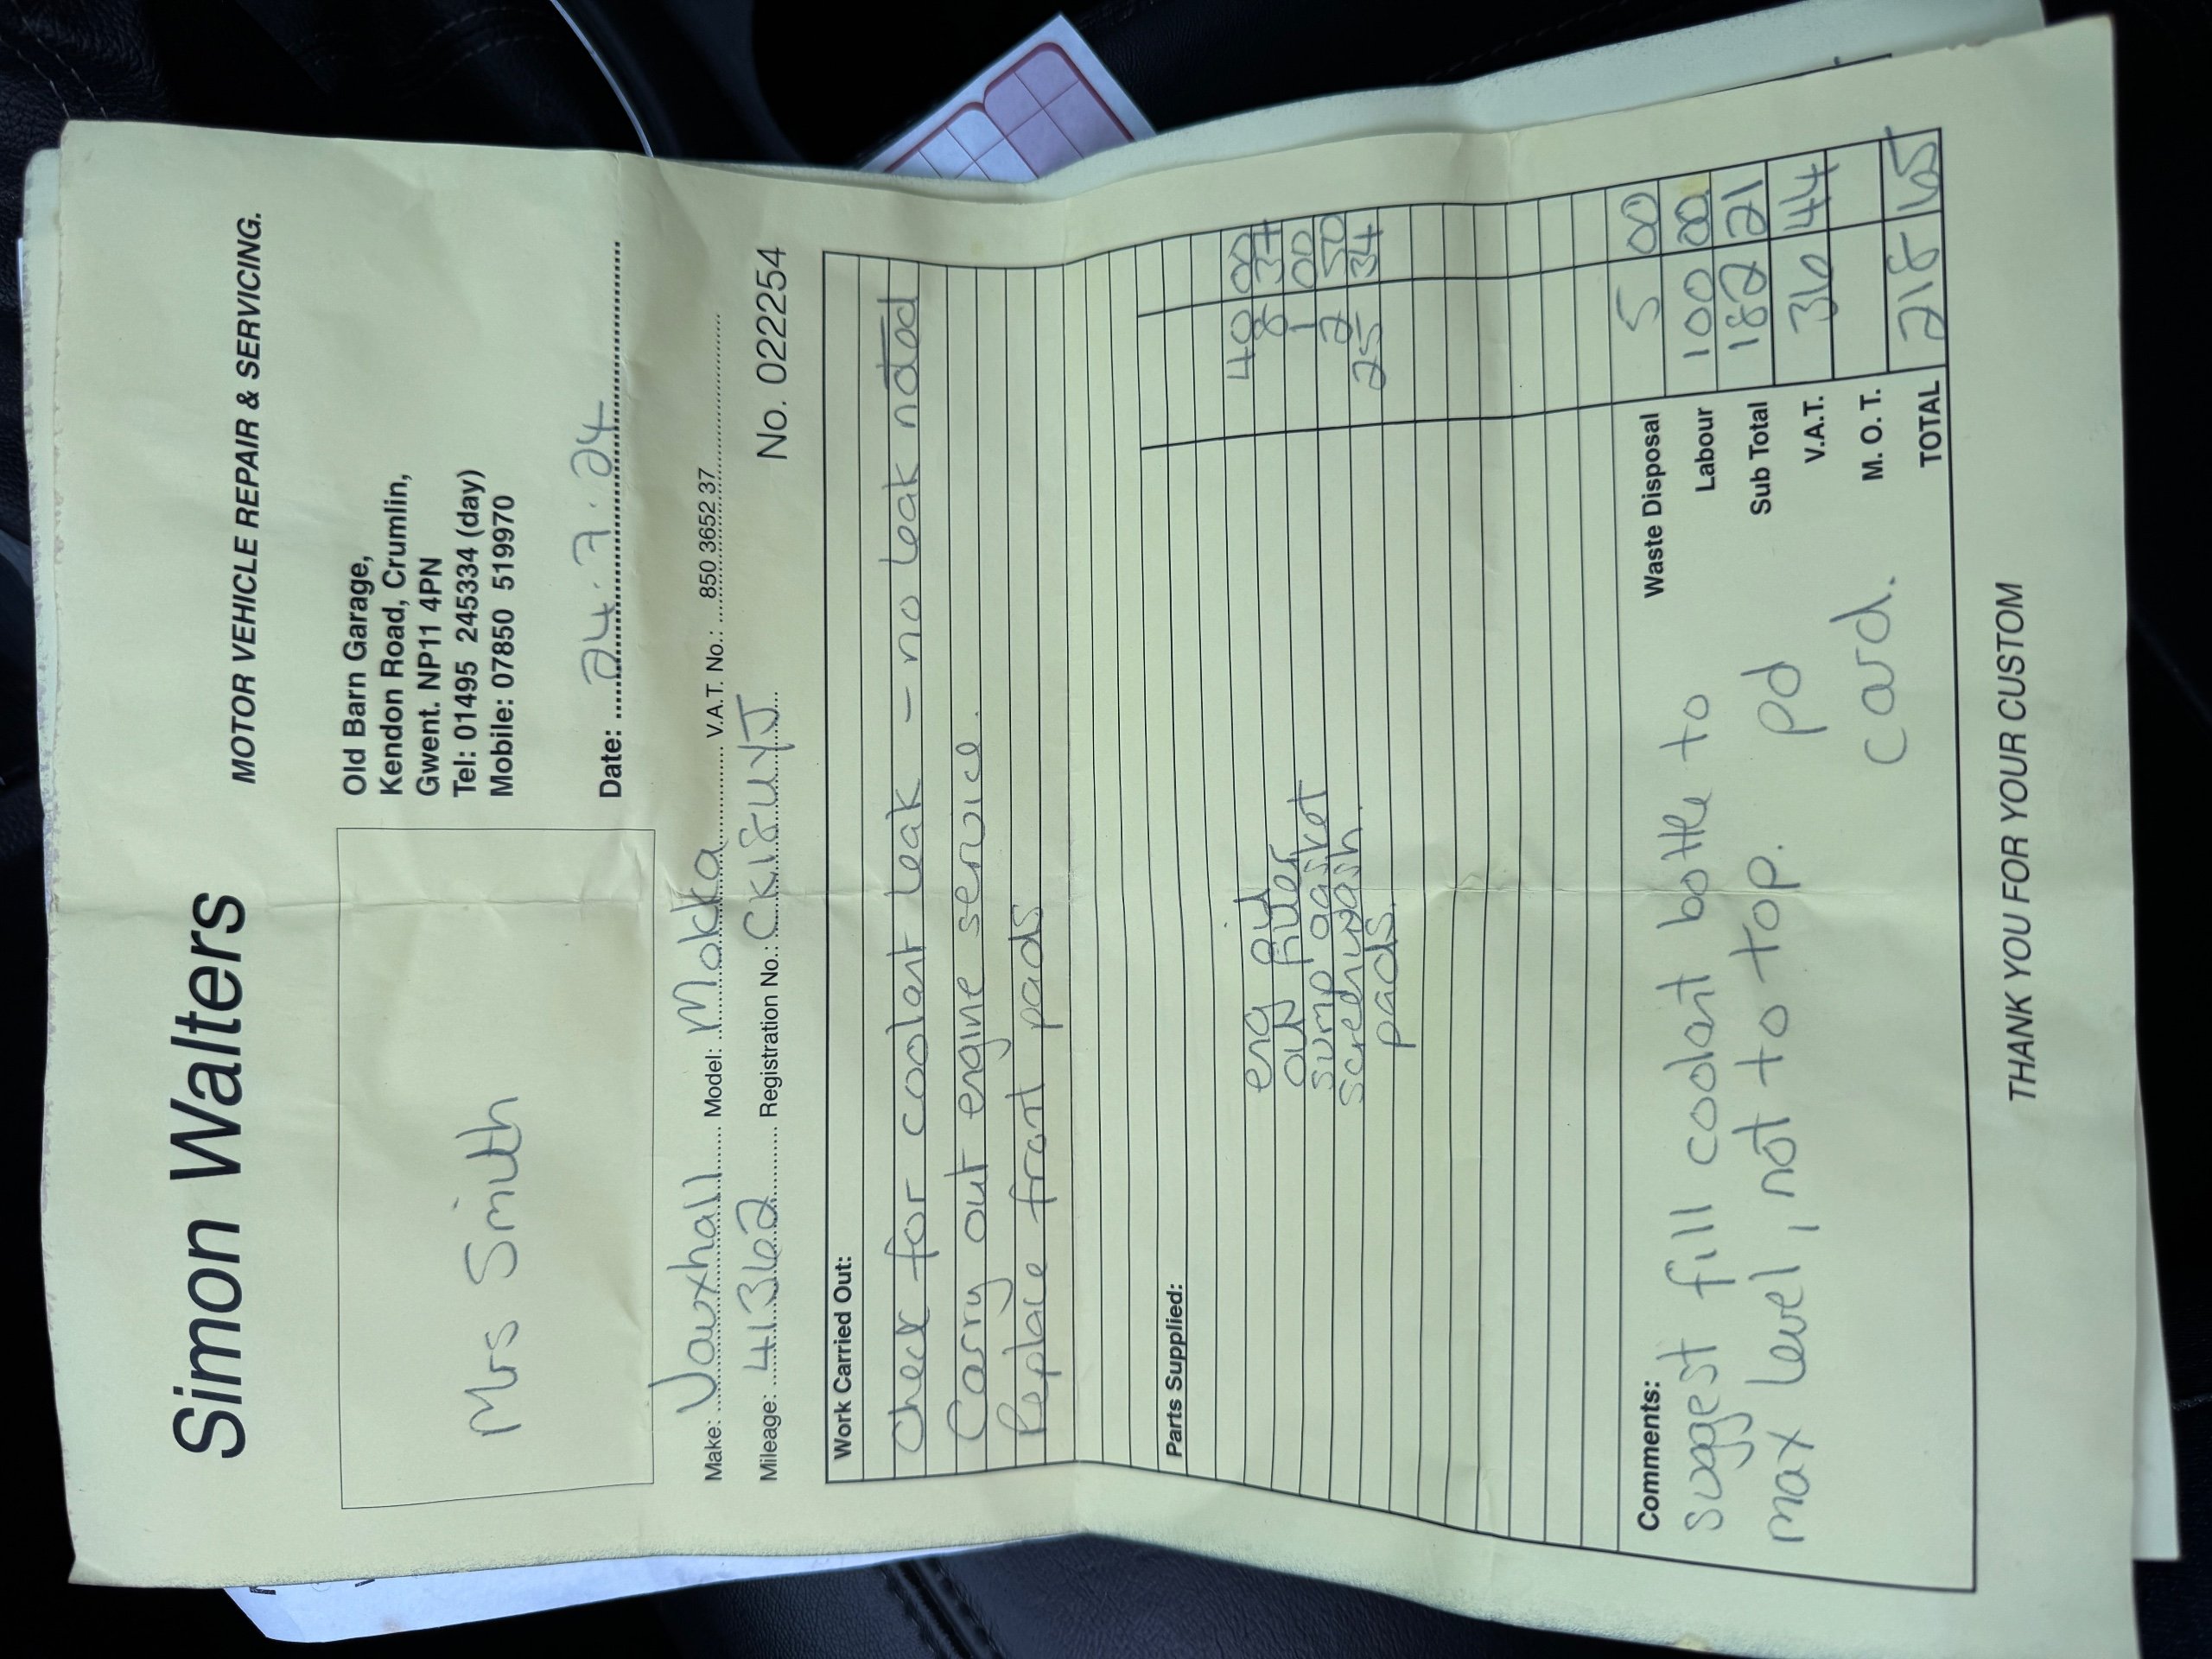 Simon Walters
MOTOR VEHICLE REPAIR & SERVICING.
Mrs Smith
Old Barn Garage,
Kendon Road, Crumlin,
Gwent. NP11 4PN
Tel: 01495 245334 (day)
Mobile: 07850 519970
Date: 24.7.24
Make: Vauxhall Model: Mokka V.A.T. No.: 850 3652 37
Mileage: 41362 Registration No.: CK18UYJ
No. 022254
Work Carried Out:
Check for coolant leak - no leak noted
Carry out engine service.
Replace front pads
Parts Supplied:
eng oil 40 00
oil filter 8 37
sump gasket 1 00
screenwash 2 50
pads. 25 34
Comments:
suggest fill coolant bottle to
max level, not to top.
pd
card.
Waste Disposal 5 00
Labour 100 00
Sub Total 182 21
V.A.T. 36 44
M. O. T.
TOTAL 218 65
THANK YOU FOR YOUR CUSTOM